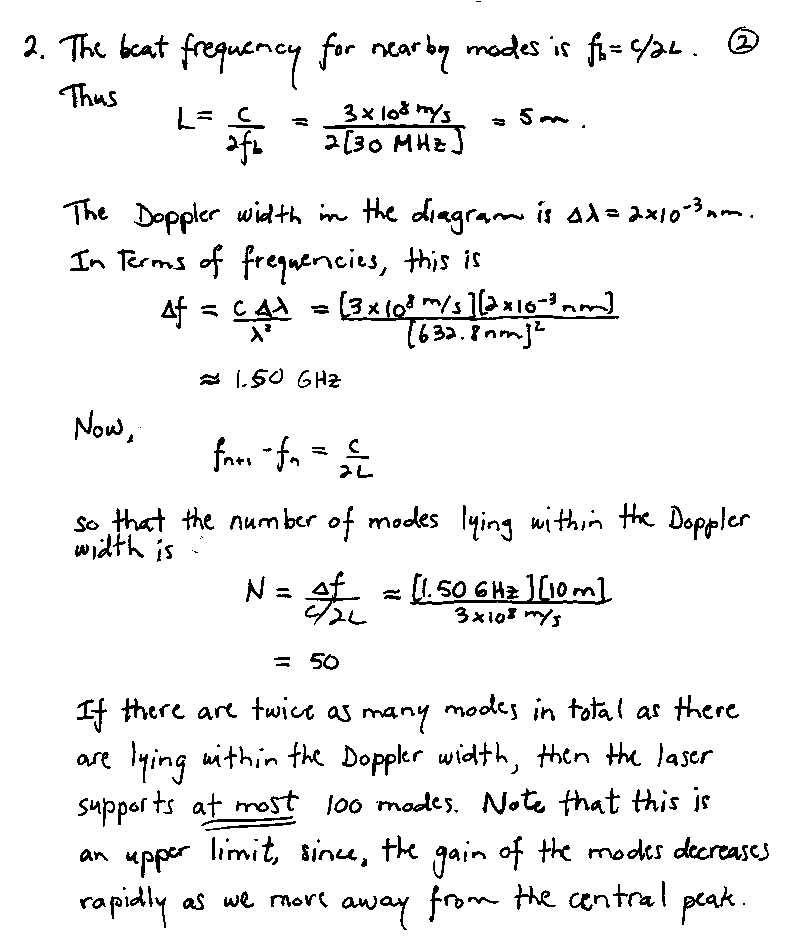 2. The beat frequency for nearby modes is f_b = c/2L. ②
Thus
L = c/2f_b = 3×10⁸ m/s / 2[30 MHz] = 5 m.
The Doppler width in the diagram is Δλ = 2×10⁻³ nm.
In Terms of frequencies, this is
Δf = cΔλ/λ² = [3×10⁸ m/s][2×10⁻³ nm] / [632.8nm]²
≈ 1.50 GHz
Now,
f_{n+1} - f_n = c/2L
so that the number of modes lying within the Doppler
width is
N = Δf / c/2L ≈ [1.50 GHz][10 m] / 3×10⁸ m/s
= 50
If there are twice as many modes in total as there
are lying within the Doppler width, then the laser
supports at most 100 modes. Note that this is
an upper limit, since, the gain of the modes decreases
rapidly as we move away from the central peak.